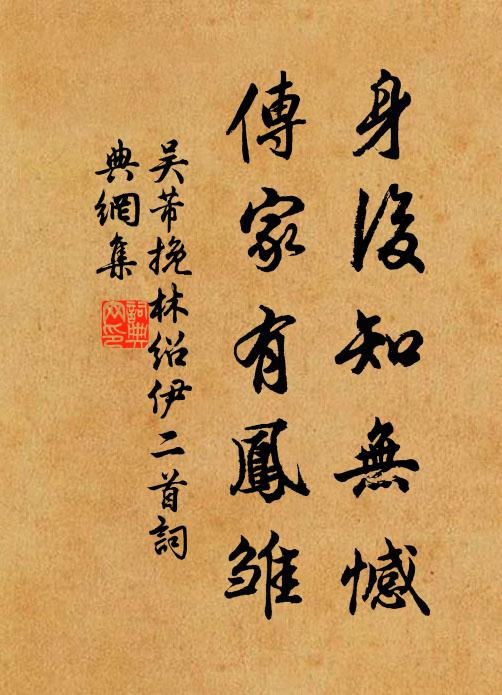 身後知無憾
傳家有鳳雛
吴芾挽林紹伊二首詞
典網集
詞典
网印